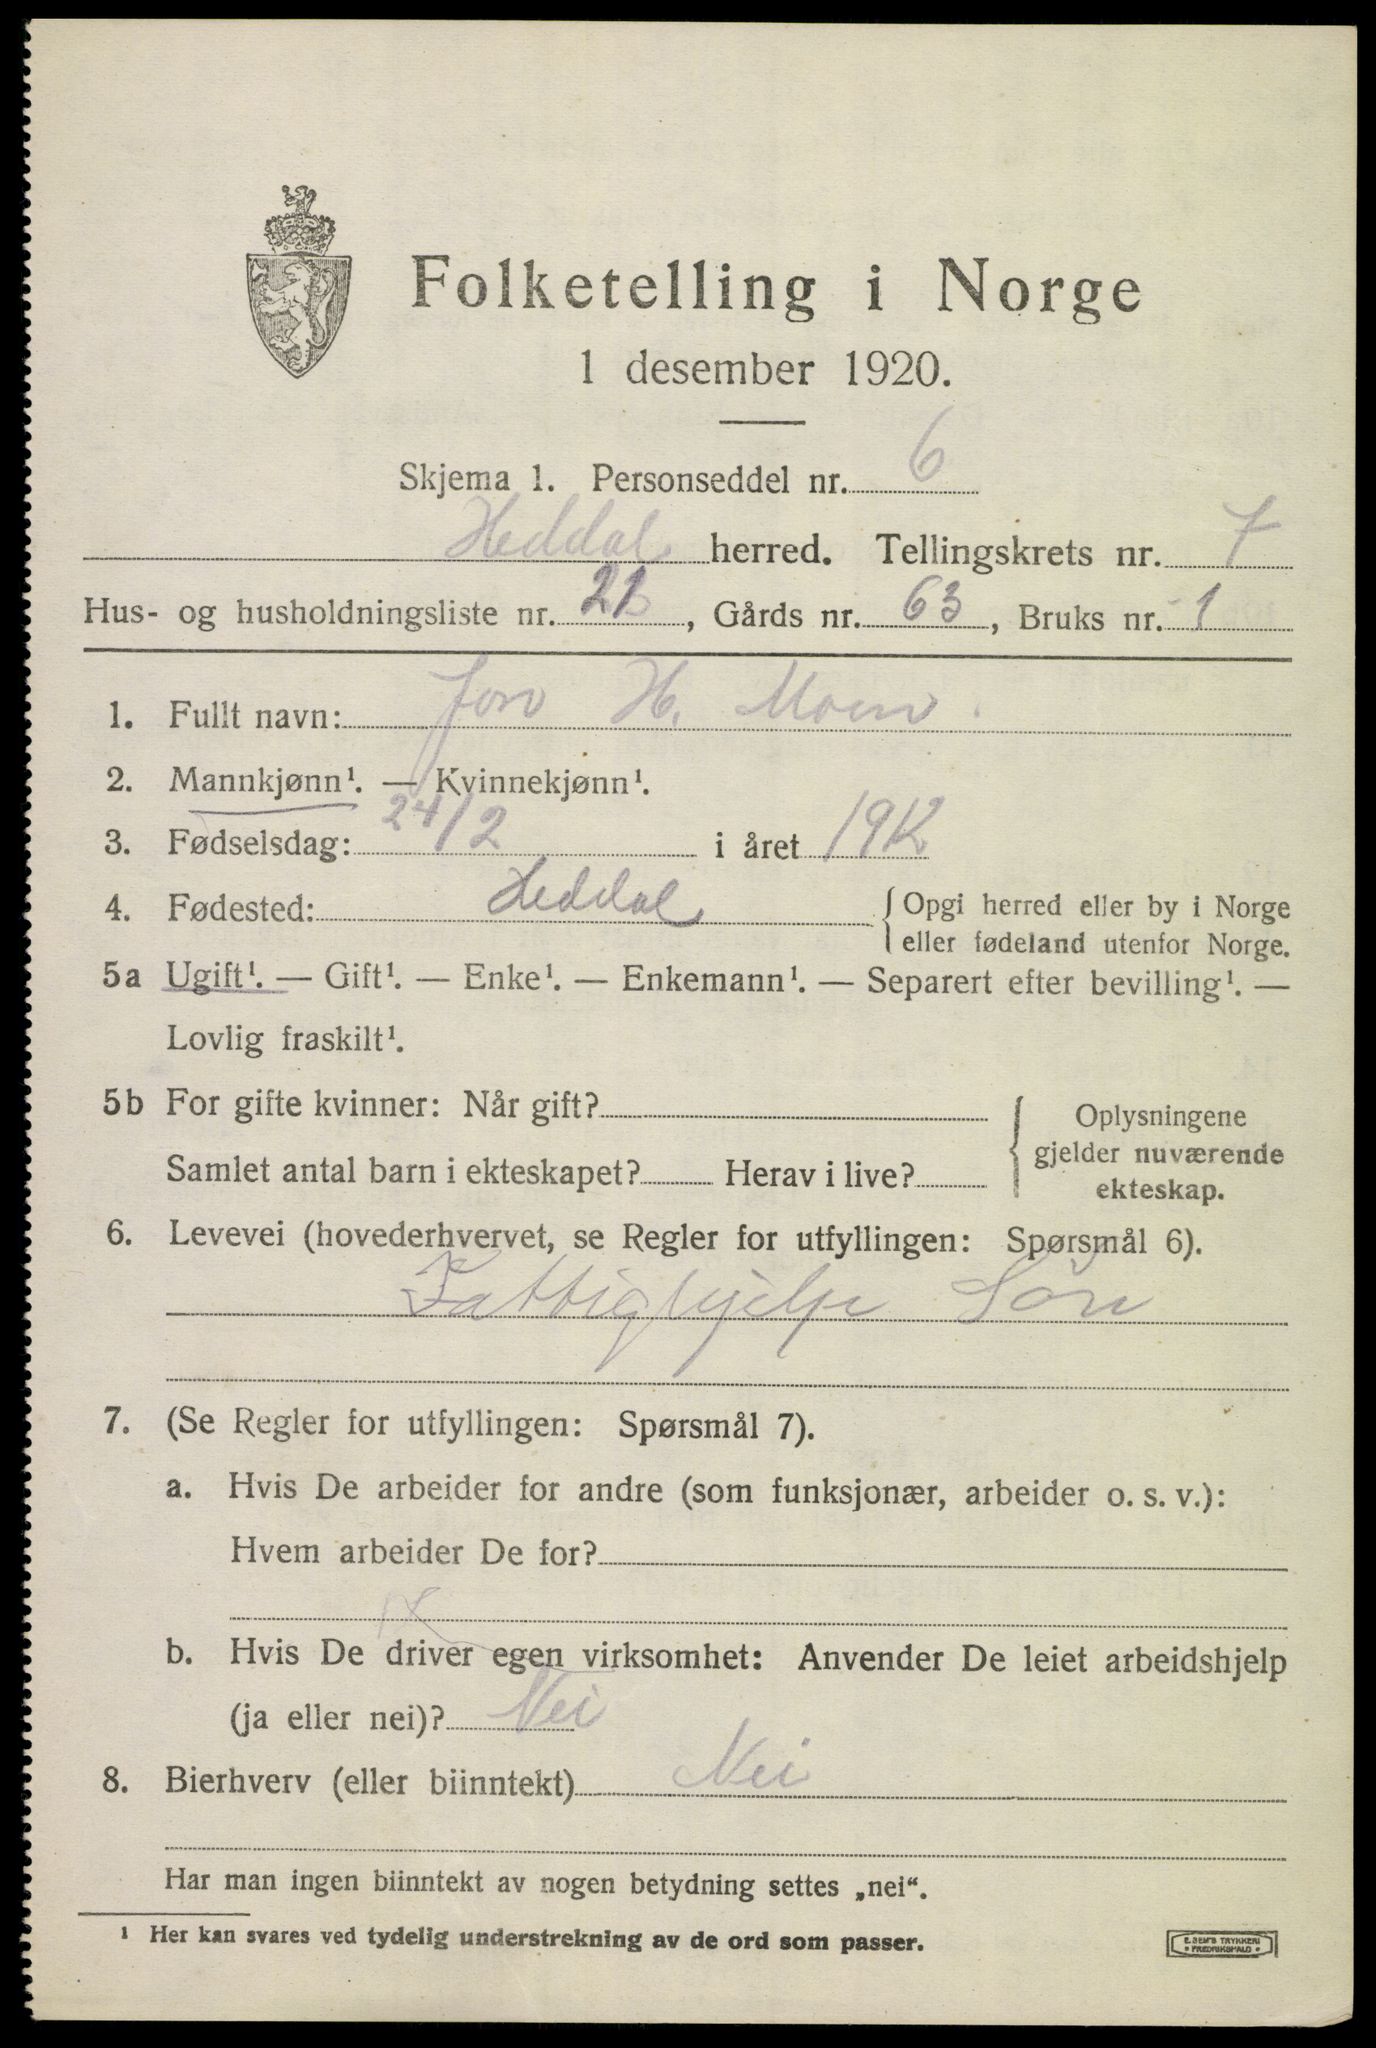 Folketelling i Norge
1 desember 1920.
Skjema 1. Personseddel nr. 6
Heddal herred. Tellingskrets nr. 7
Hus- og husholdningsliste nr. 21, Gårds nr. 63, Bruks nr. 1
1. Fullt navn: Jon H. Moen.
2. Mannkjønn¹. — Kvinnekjønn¹.
3. Fødselsdag: 24/2 i året 1912
4. Fødested: Heddal { Opgi herred eller by i Norge
eller fødeland utenfor Norge.
5a Ugift¹. — Gift¹. — Enke¹. — Enkemann¹. — Separert efter bevilling¹. —
Lovlig fraskilt¹.
5b For gifte kvinner: Når gift? { Oplysningene
gjelder nuværende
Samlet antal barn i ekteskapet? Herav i live?
ekteskap.
6. Levevei (hovederhvervet, se Regler for utfyllingen: Spørsmål 6).
Fattighjelp Sön
7. (Se Regler for utfyllingen: Spørsmål 7).
a. Hvis De arbeider for andre (som funksjonær, arbeider o. s. v.):
Hvem arbeider De for?
b. Hvis De driver egen virksomhet: Anvender De leiet arbeidshjelp
(ja eller nei)? Nei
8. Bierhverv (eller biinntekt) Nei
Har man ingen biinntekt av nogen betydning settes „nei“.
¹ Her kan svares ved tydelig understrekning av de ord som passer.
E. SEM'S TRYKKERI
• FREDRIKSHALD •